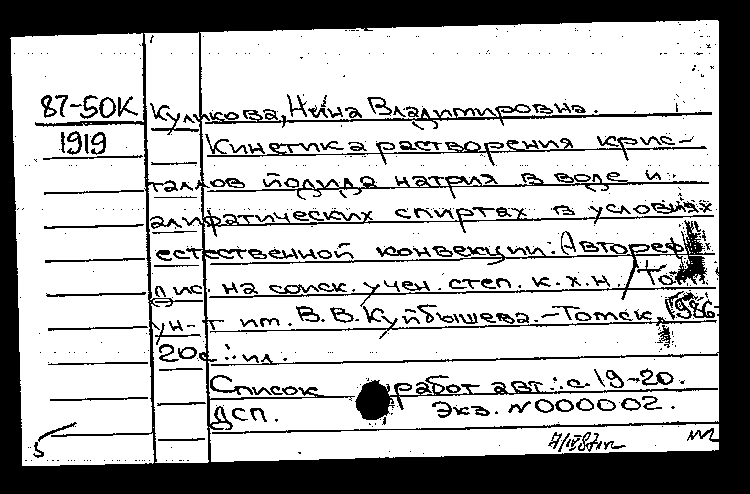 87-50К Куликова, Нина Владимировна.
1919 Кинетика растворения крис-
таллов йодида натрия в воде и
алифатических спиртах в условиях
естественной конвекции: Автореф.
дис. на соиск. учен. степ. к.х.н / Том.
ун-т им. В.В.Куйбышева.-Томск, 1986.-
20с.: ил.
Список работ авт.: с.19-20.
ДСП. Экз. N000002.
5